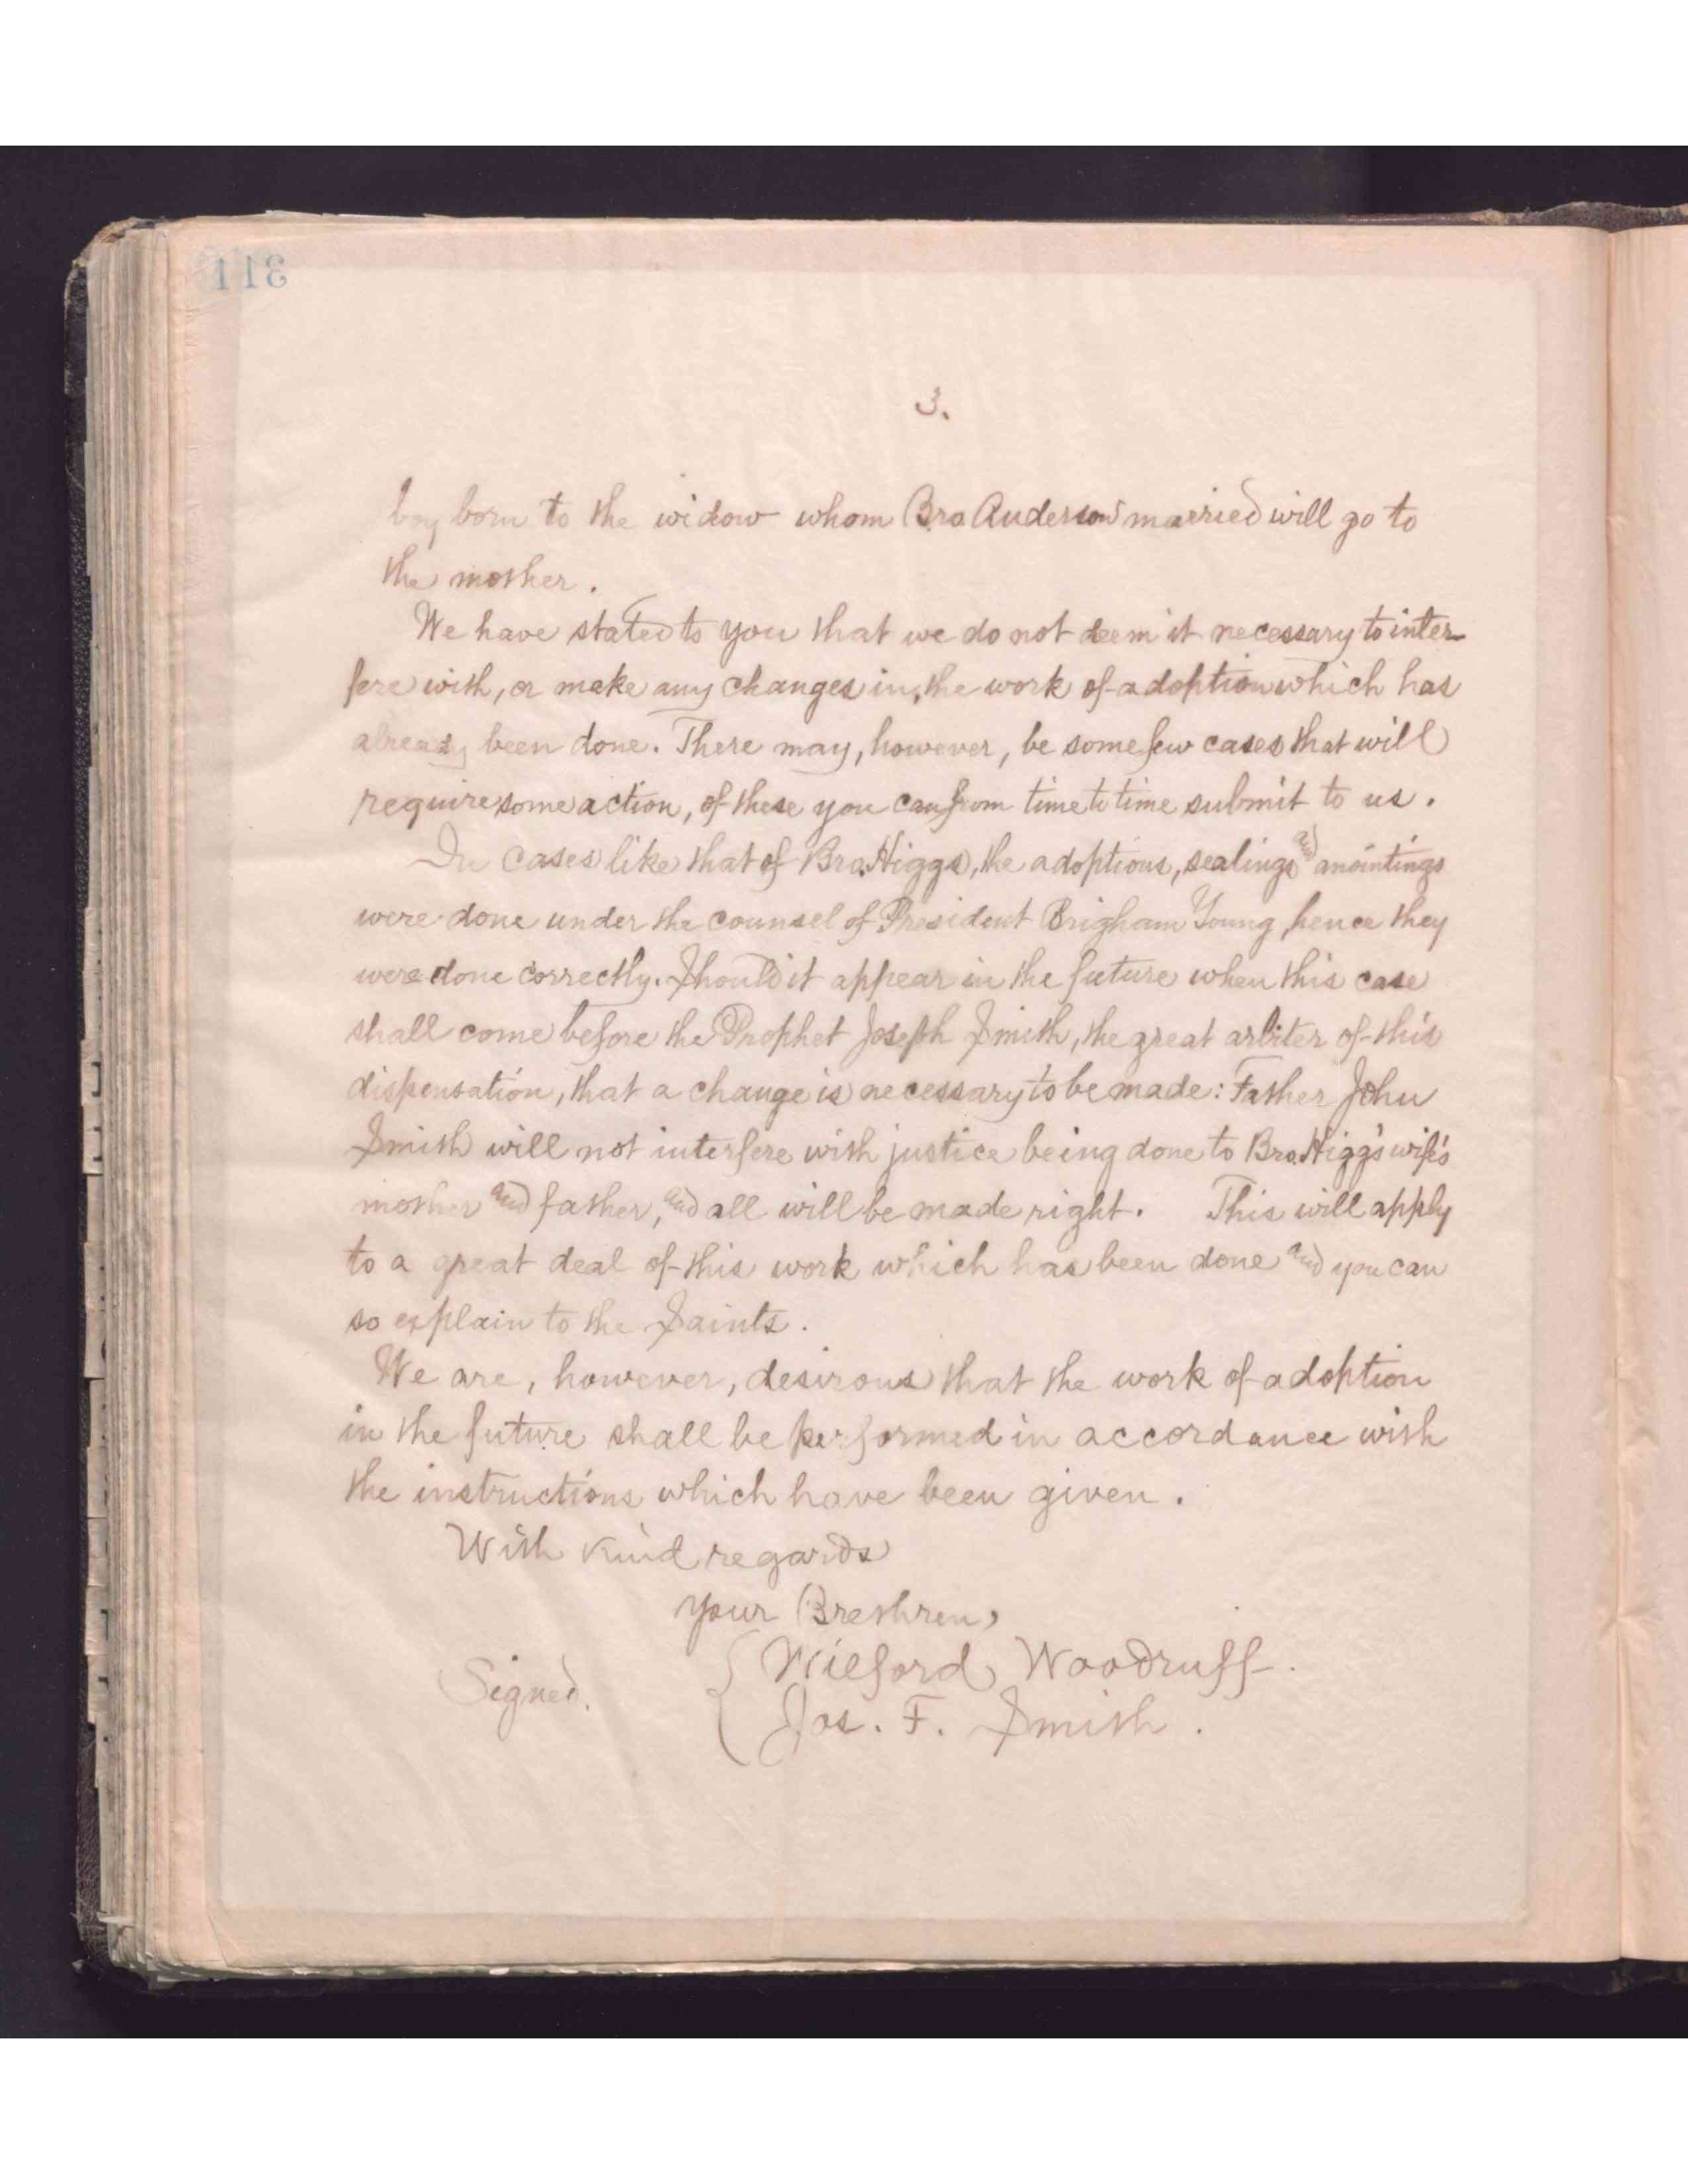 311
3.
boy born to the widow whom Bro. Anderson married will go to
the mother.
We have stated to you that we do not deem it necessary to inter-
fere with, or make any changes in, the work of adoption which has
already been done. There may, however, be some few cases that will
require some action, of these you can from time to time submit to us.
In cases like that of Bro. Higgs, the adoptions, sealings and anointings
were done under the counsel of President Brigham Young, hence they
were done correctly. Should it appear in the future when this case
shall come before the Prophet Joseph Smith, the great arbiter of this
dispensation, that a change is necessary to be made: Father John
Smith will not interfere with justice being done to Bro. Higg's wife's
mother and father, and all will be made right. This will apply
to a great deal of this work which has been done and you can
so explain to the Saints.
We are, however, desirous that the work of adoption
in the future shall be performed in accordance with
the instructions which have been given.
With kind regards
Your Brethren,
Signed. { Wilford Woodruff.
Jos. F. Smith.